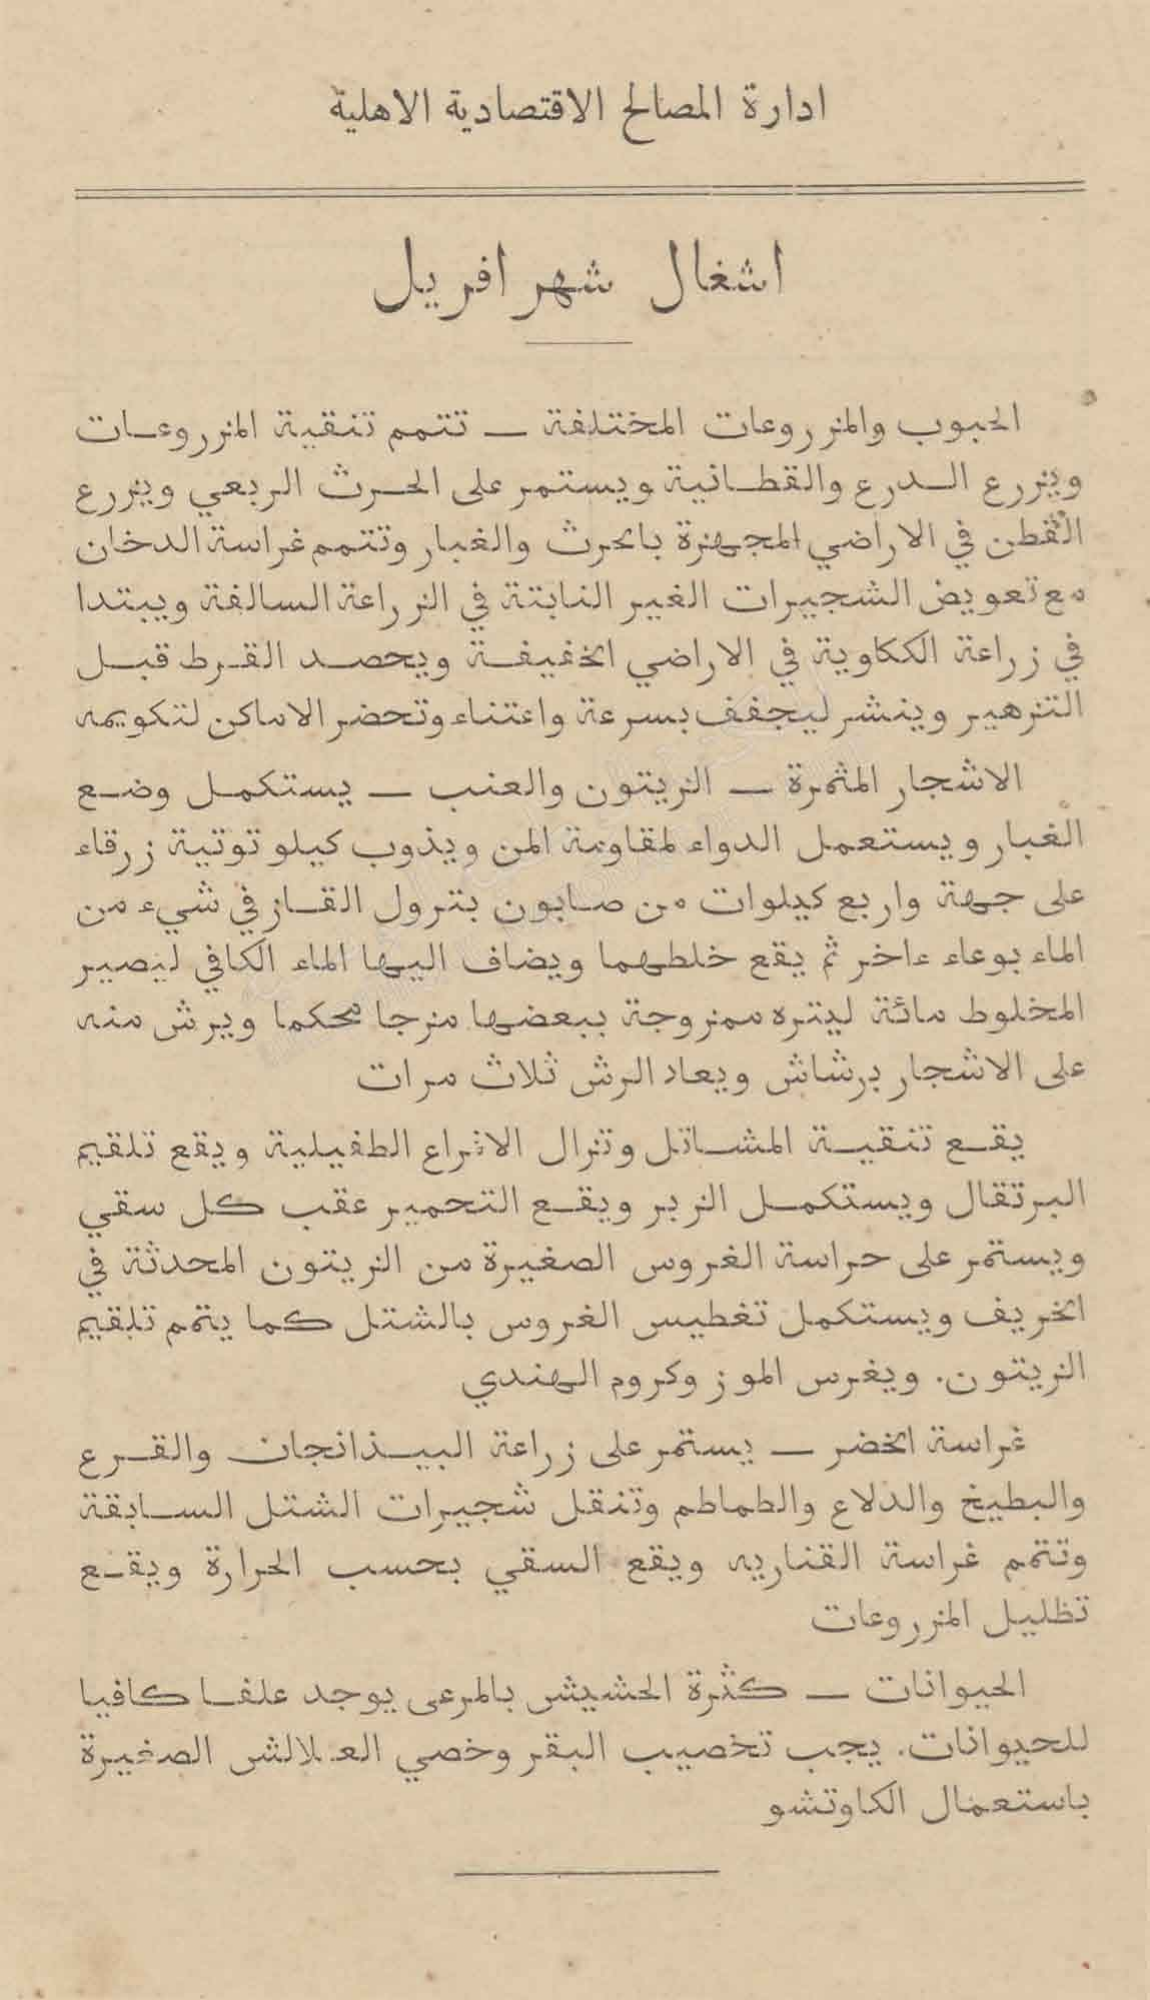 ادارة المصالح الاقتصادية الاهلية
اشغال شهر افريل
الحبوب والمزروعات المختلفة — تتمم تنقية المزروعات
ويزرع الدرع والقطانية ويستمر على الحرث الربعي ويزرع
القطن في الاراضي المجهزة بالحرث والغبار وتتمم غراسة الدخان
مع تعويض الشجيرات الغير النابتة في الزراعة السالفة ويبتدا
في زراعة الككاوية في الاراضي الخفيفة ويحصد القرط قبل
التزهير وينشر ليجفف بسرعة واعتناء وتحضر الاماكن لتكويمه
الاشجار المثمرة — الزيتون والعنب — يستكمل وضع
الغبار ويستعمل الدواء لمقاومة المن ويذوب كيلو توتية زرقاء
على جهة واربع كيلوات من صابون بترول القاز في شيء من
الماء بوعاء ءاخر ثم يقع خلطهما ويضاف اليها الماء الكافي ليصير
المخلوط مائة ليتره ممزوجة ببعضها مزجا محكما ويرش منه
على الاشجار برشاش ويعاد الرش ثلاث مرات
يقع تنقية المشاتل وتزال الافراع الطفيلية ويقع تلقيم
البرتقال ويستكمل الزبر ويقع التحمير عقب كل سقي
ويستمر على حراسة الغروس الصغيرة من الزيتون المحدثة في
الخريف ويستكمل تغطيس الغروس بالشتل كما يتمم تلقيم
الزيتون. ويغرس الموز وكروم الهندي
غراسة الخضر — يستمر على زراعة البيذانجان والقرع
والبطيخ والدلاع والطماطم وتنقل شجيرات الشتل السابقة
وتتمم غراسة القناريه ويقع السقي بحسب الحرارة ويقع
تظليل المزروعات
الحيوانات — كثرة الحشيش بالمرعى يوجد علفا كافيا
للحيوانات. يجب تخصيب البقر وخصي العلالش الصغيرة
باستعمال الكاوتشو